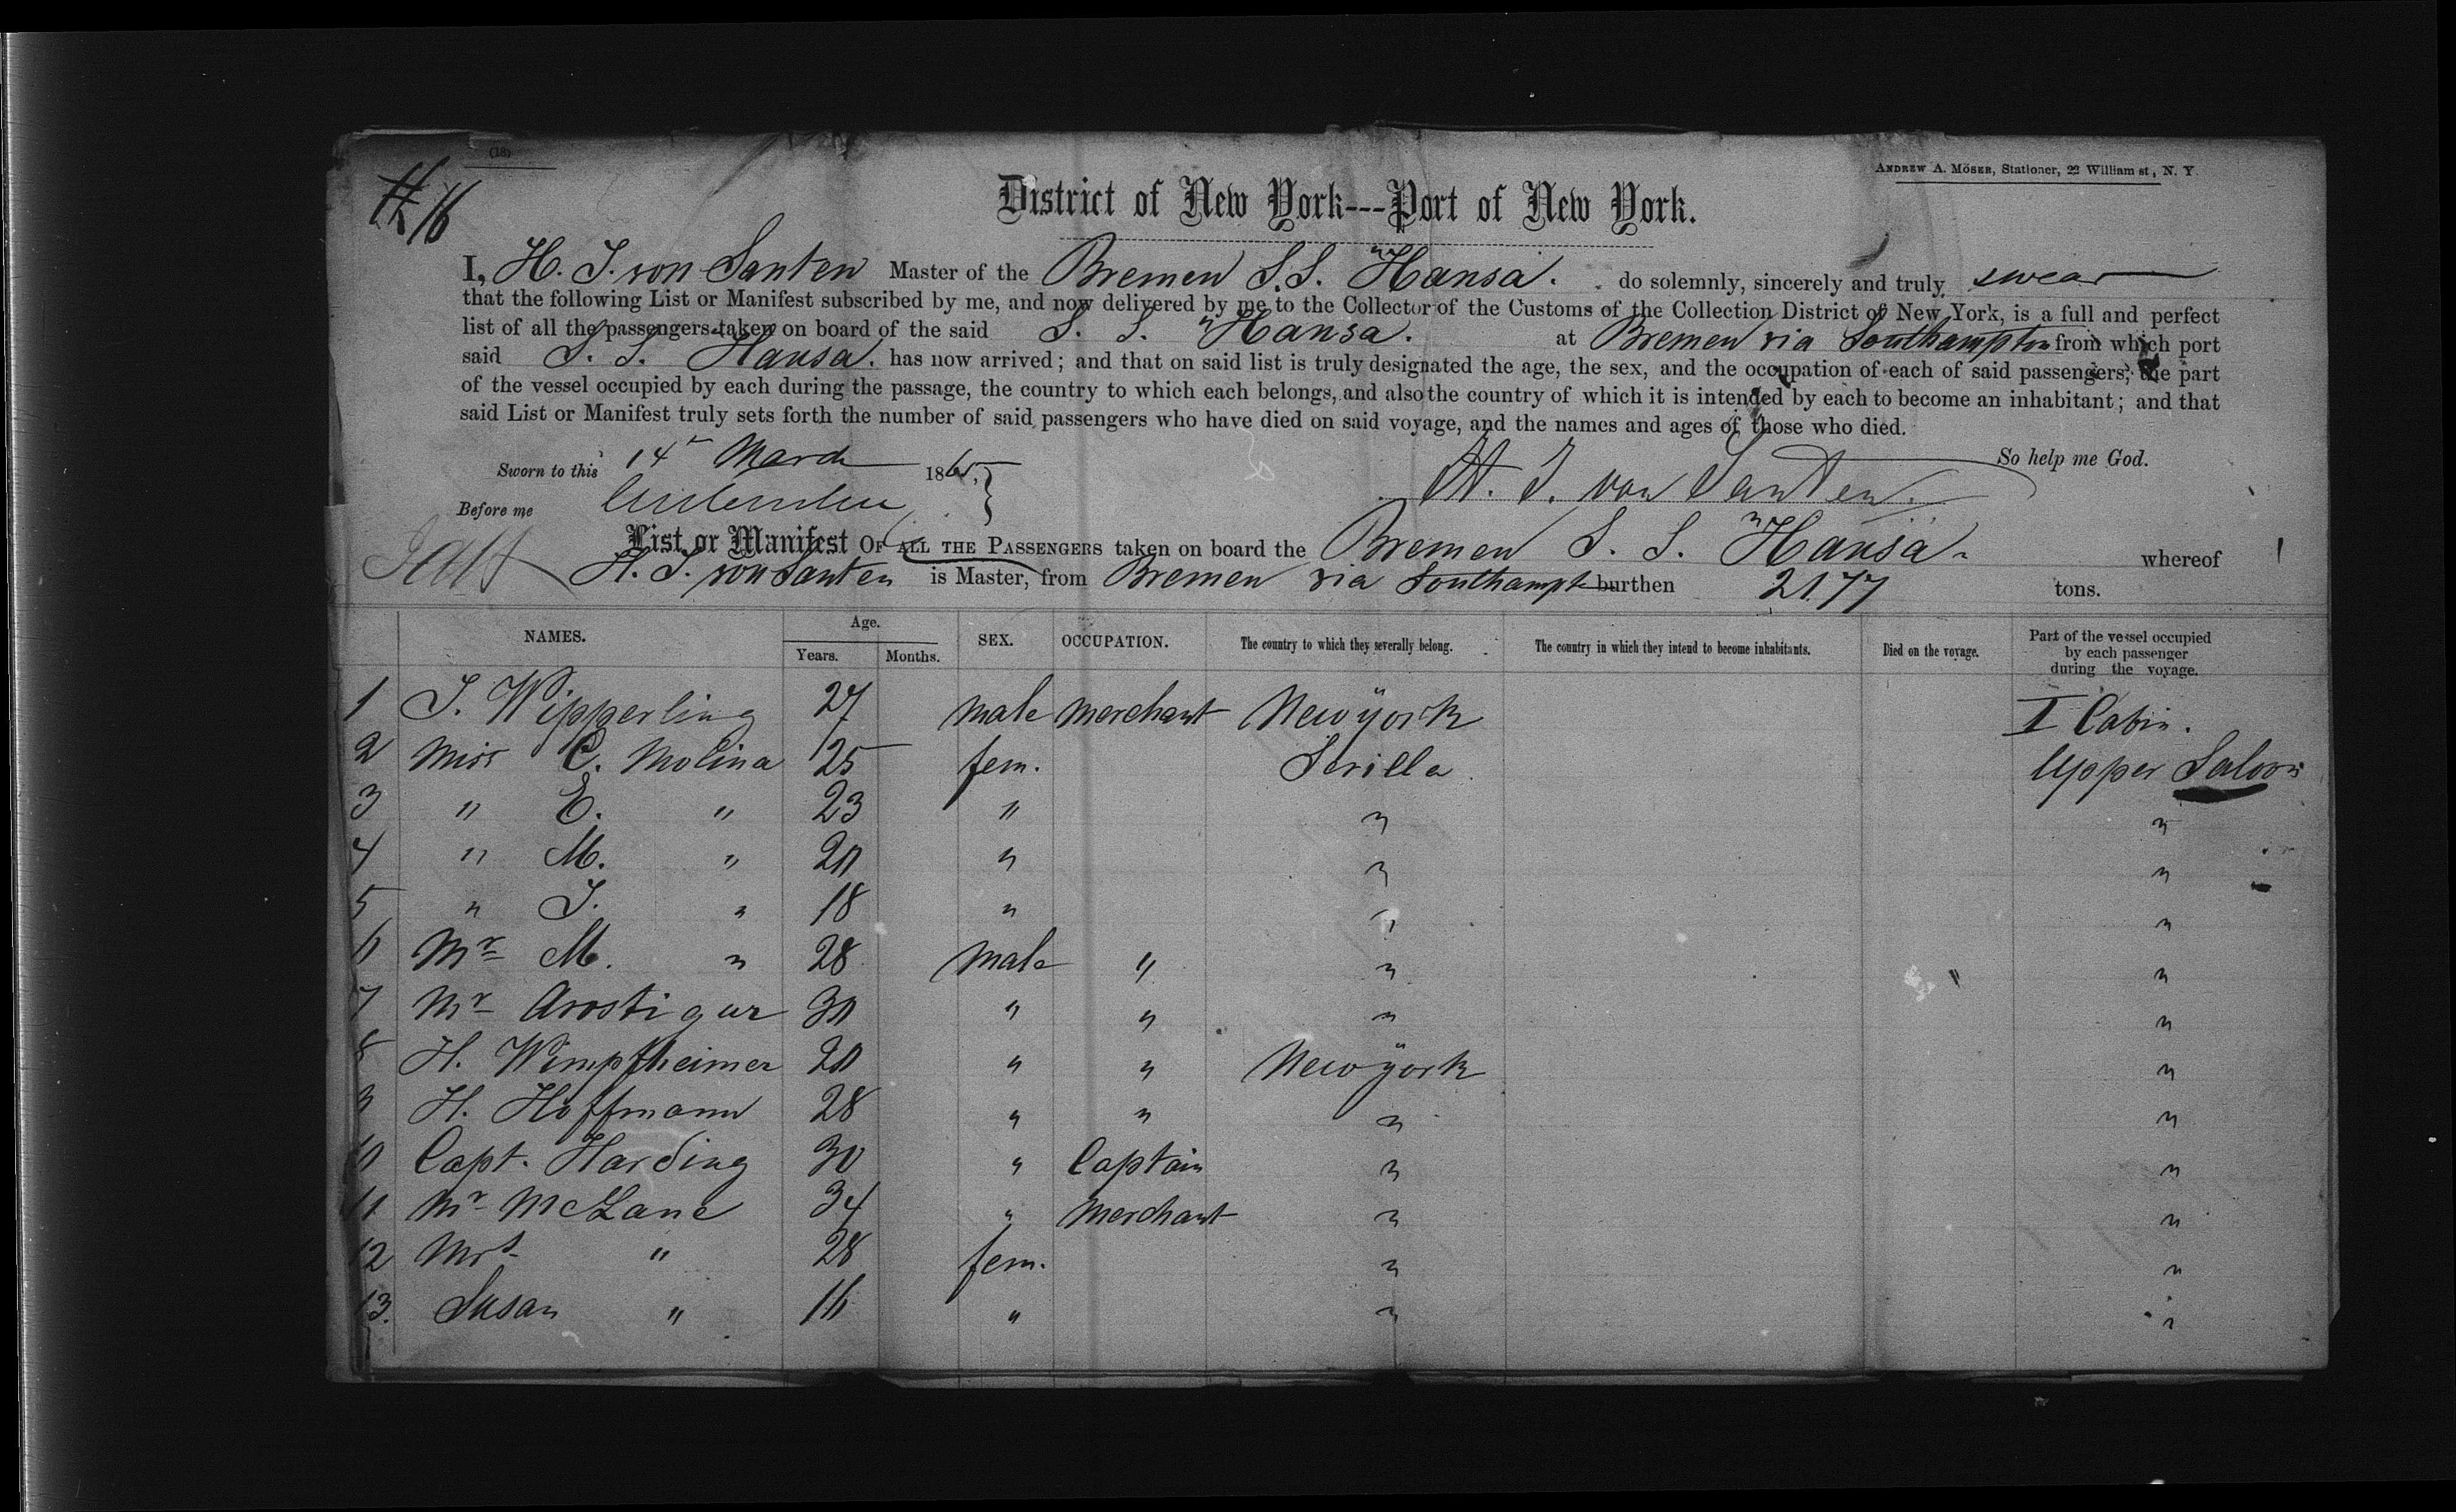 (18)
ANDREW A. MÖSER, Stationer, 22 William st, N. Y.
16
District of New York---Port of New York.
I, H. J. von Santen Master of the Bremen S.S. "Hansa. do solemnly, sincerely and truly swear
that the following List or Manifest subscribed by me, and now delivered by me to the Collector of the Customs of the Collection District of New York, is a full and perfect
list of all the passengers taken on board of the said S. S. "Hansa. at Bremen via Southampton from which port
said S. S. Hansa. has now arrived; and that on said list is truly designated the age, the sex, and the occupation of each of said passengers, the part
of the vessel occupied by each during the passage, the country to which each belongs, and also the country of which it is intended by each to become an inhabitant; and that
said List or Manifest truly sets forth the number of said passengers who have died on said voyage, and the names and ages of those who died.
So help me God.
Sworn to this 14th March 1865,
H. J. von Santen.
Before me
List or Manifest OF ALL THE PASSENGERS taken on board the Bremen S. S. "Hansa. whereof
H. J. von Santen is Master, from Bremen via Southampt burthen 2177 tons.
NAMES. Age. Years. Months. SEX. OCCUPATION. The country to which they severally belong. The country in which they intend to become inhabitants. Died on the voyage. Part of the vessel occupied by each passenger during the voyage.
1 J. Wipperling 27 male merchant Newyork I Cabin.
2 Miss C. Molina 25 fem. Sevilla Upper Saloon
3 " E. " 23 " " "
4 " M. " 20 " " "
5 " J. " 18 " " "
6 Mr M. " 28 male " " "
7 Mr Arostigur 30 " " " "
8 H. Wimpfheimer 20 " " Newyork "
9 H. Hoffmann 28 " " " "
10 Capt. Harding 30 " Captain " "
11 Mr McLane 34 " Merchant " "
12 Mrs " 28 fem. " "
13. Susan " 16 " " "